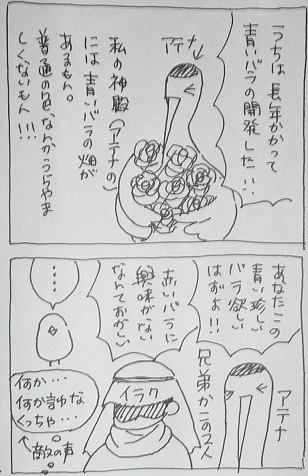 うちは長年かかって
青いバラの開発した!!
アテナ
私の神殿(アテナの)
には青いバラの畑が
あるもん。
普通の色なんかうらやま
しくないもん!!!
アテナ
あなたこの
青い珍しい
バラ欲しい
はずよ!!
兄弟かこの2人
赤いバラに
興味がない
なんておかしい
イラク
・・・・
何か…
何か許さな
くっちゃ…
敵の声